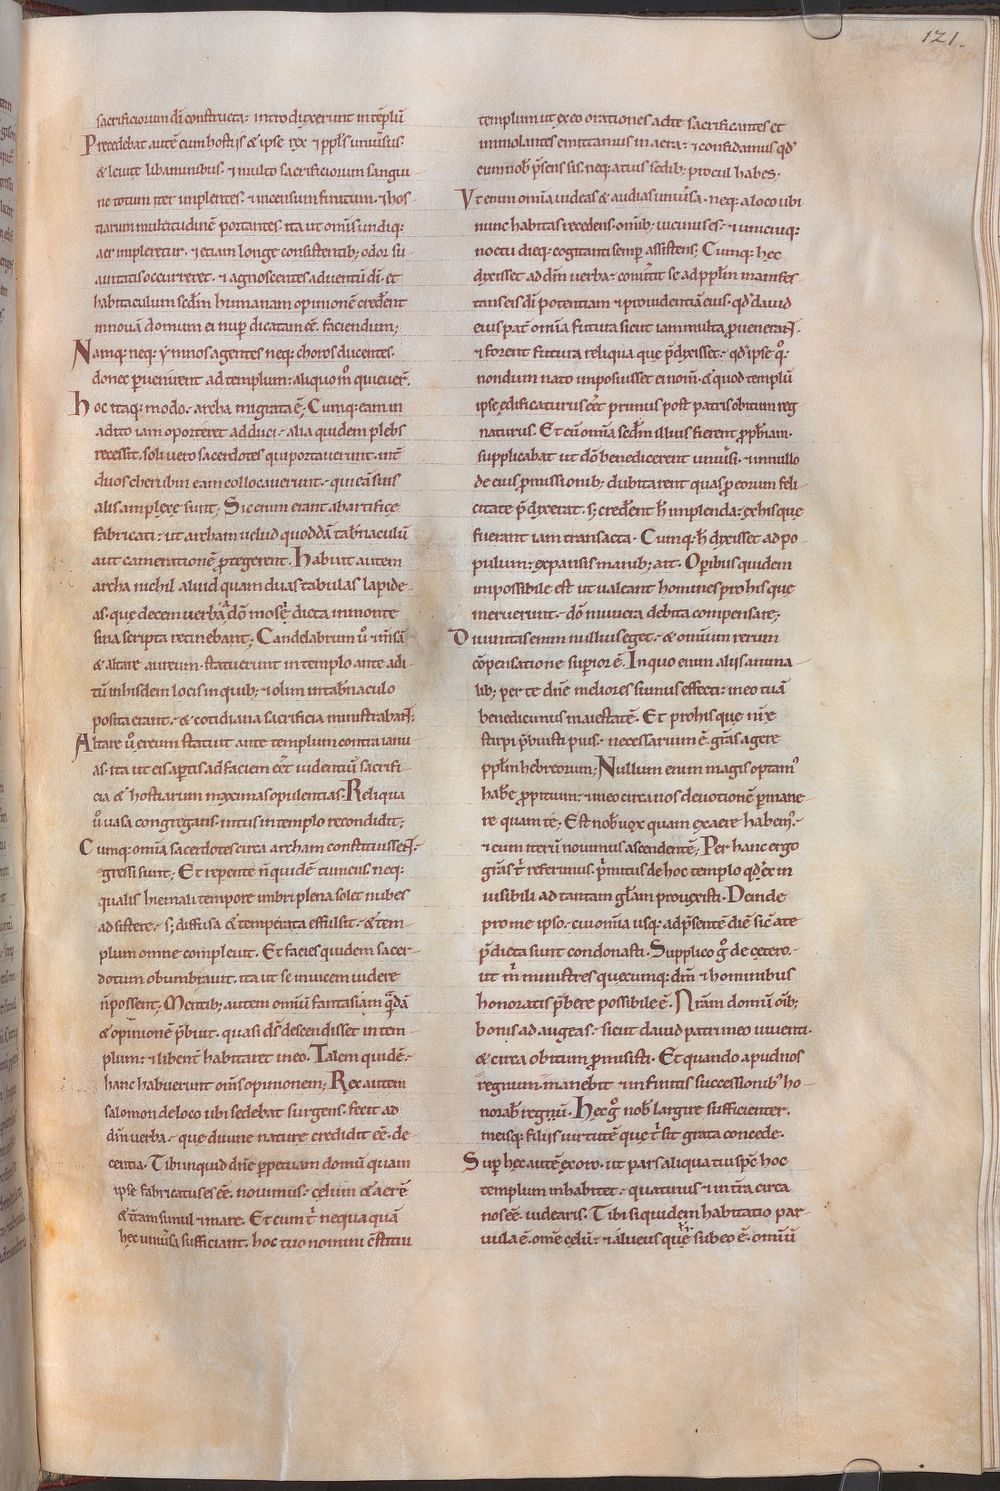 121.
sacrificiorum dī constructa: introduxerunt in tēplū
Precedebat autē cum hostiis & ipse rex ⁊ ppl̄s univ̄sus.
& levite libaminibus. ⁊ multo sacrificiorum sangui
ne totum iter implentes. & incensum finitum. & hos
tiarum multitudinē portantes. ita ut om̄is undiq;
aer impleretur. ⁊ etiam longe consistentib; odor su
avitatis occurreret. ⁊ agnoscentes adventū dī. et
habitaculum sedm̄ humanam opinionē cred̄ent
in novā domum ei nup̄ dicatam eē. faciendum;
Namq; neq; ymnos agentes neq; choros ducentes.
donec p̄venirent ad templum: aliquo m̊ quiever̄.
hoc itaq; modo. archa migrata ē; Cumq; eam in
adito iam oporteret adduci. alia quidem plebs
recessit. soli vero sacerdotes qui portaverunt. int̄
duos cherubin eam collocaverunt. qui eā suis
alis amplexe sunt; Sic enim erant ab artifice
fabricati: ut archam velud quoddā tab̄naculū
aut camerationē p̄tegerent. Habuit autem
archa nichil aliud quam duas tabulas lapide
as. quę decem verba a dō mosẹ̄ dicta in monte
sina scripta retinebant; Candelabrum ů ⁊ m̄sā
& altare aureum. statuerunt in templo ante adi
tū in hisdem locis in quib; ⁊ olim in tab̄naculo
posita erant. & cotidiana sacrificia ministrabant̄.
Altare ů ereum statuit ante templum contra ianu
as. ita ut eis ap̄tis ad faciem eēt videntiū sacrifi
cia & hostiarum maximas opulentias. Reliqua
ů vasa congregans. intus in templo recondidit;
Cumq; om̄ia sacerdotes circa archam constituissent. eḡ
gressi sunt; Et repente n̄ quidē tumens neq;
qualis hiemali tempore imbri plena solet nubes
adsistere. s; diffusa & temperata effulsit. & tem
plum omne complevit. Et facies quidem sacer
dotum obumbravit. ita ut se invicem videre
n̄ possent; Mentib; autem omiū fantasiam q̄dā
& opinionē p̄buit. quasi ds̄ descendisset in tem
plum: ⁊ libent̄ habitaret in eo. Talem quidē.
hanc habuerunt om̄s opinionem; Rex autem
salomon de loco ubi sedebat surgens. fecit ad
dm̄ verba. que divine nature credidit eē de
centia. Tibi inquid dn̄e p̄petuam domū quam
ipse fabricatus es eē. novimus. cęlum & aerē
& t̄ram simul ⁊ mare. Et cum t̄ nequaquā
hec univ̄sa sufficiant. hoc tuo nomini c̄stitui
templum ut ex eo orationes ad te sacrificantes et
immolantes emittamus in aera: ⁊ confidamus qd̄
cum nob̄ p̄sens sis. neq; a tuis sedib; procul habes.
Vt enim om̄ia videas & audias univ̄sa. neq; a loco ubi
nunc habitas recedens. om̄ib; vicinus es. ⁊ unicuiq;
noctu dieq; cogitanti semp̄ assistens; Cumq; hec
dixisset ad dm̄ verba: conv̄tit se ad ppl̄m manifes
tans eis dī potentiam ⁊ providentiā eius. qd̄ david
eius patri om̄ia futura sicut iam multa p̄venerant.
⁊ forent futura reliqua que p̄dixisset. qd̄ ipse q̊
nondum nato imposuisset ei nom̄. & quod templū
ipse ędificaturus eēt primus post patris obitum reg
naturus. Et cū omnia sedm̄ illius fierent p̄pħiam.
supplicabat ut dō benedicerent univ̄si. ⁊ in nullo
de eius p̄missionib; dubitarent quas p̄ eorum feli
citate p̄dixerat. s; cred̄ent ħ implenda: ex his que
fuerant iam transacta. Cumq; ħ dixisset ad po
pulum: expansis manib; ait. Op̄ibus quidem
impossibile est ut valeant homines pro his que
meruerunt. dō munera debita compensare;
Divinitas enim nullius eget. & omnium rerum
cōpensatione superior ē. In quo enim aliis anima
lib; per te dn̄e meliores sumus effecti: in eo tuā
benedicimus maiestatē. Et pro his que nr̄e
stirpi p̄buisti pius. necessarium ē. grās agere
ppl̄m hebreorum; Nullum enim magis optam᷒
hab̄e p̄pitium: ⁊ in eo circa nos devotionē p̄mane
re quam te; Est nob̄ vox quam ex aere habem᷒.
⁊ eum iterū novimus ascendentē; Per hanc ergo
grās t̄ referimus. p̄mitus de hoc templo qd̄ ex in
visibili ad tantam gl̄am provexisti. Deinde
pro me ipso. cui om̄ia usq; ad p̄sentē diē sic̄ a te
p̄dicta sunt condonasti. Supplico g̊ de cetero.
ut m̄ ministres quecumq; dm̄ ⁊ hominibus
honoratis p̄bere possibile ē. Nr̄am domū om̄ib;
bonis ad augeas. sicut david patri meo viventi.
& circa obitum p̄misisti. Et quando apud nos
regnum manebit ⁊ infinitis successionib᷒ ho
norab̄ regnū. Hec g̊ nob̄ largire sufficienter.
meisq; filiis virtutē que t̄ sit grata concede.
Sup̄ hęc autē exoro. ut pars aliqua tui sp̄c hoc
templum inhabitet. quatinus ⁊ in t̄ra circa
nos eē. videaris. Tibi siquidem habitatio par
vula ē. ome cęlū. ⁊ alveus que sub eo ē. omniū